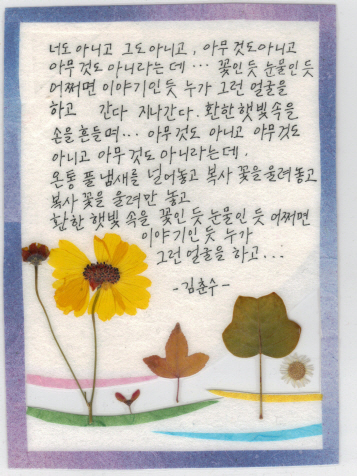 너도 아니고 그도 아니고, 아무것도 아니고
아무것도 아니라는데 ··· 꽃인 듯 눈물인 듯
어쩌면 이야기인 듯 누가 그런 얼굴을
하고 간다 지나간다. 환한 햇빛 속을
손을 흔들며 ··· 아무것도 아니고 아무것도
아니고 아무것도 아니라는데,
온통 풀냄새를 널어놓고 복사꽃을 울려놓고
복사꽃을 울려만 놓고
환한 햇빛 속을 꽃인 듯 눈물인 듯 어쩌면
이야기인 듯 누가
그런 얼굴을 하고 ...
-김춘수-